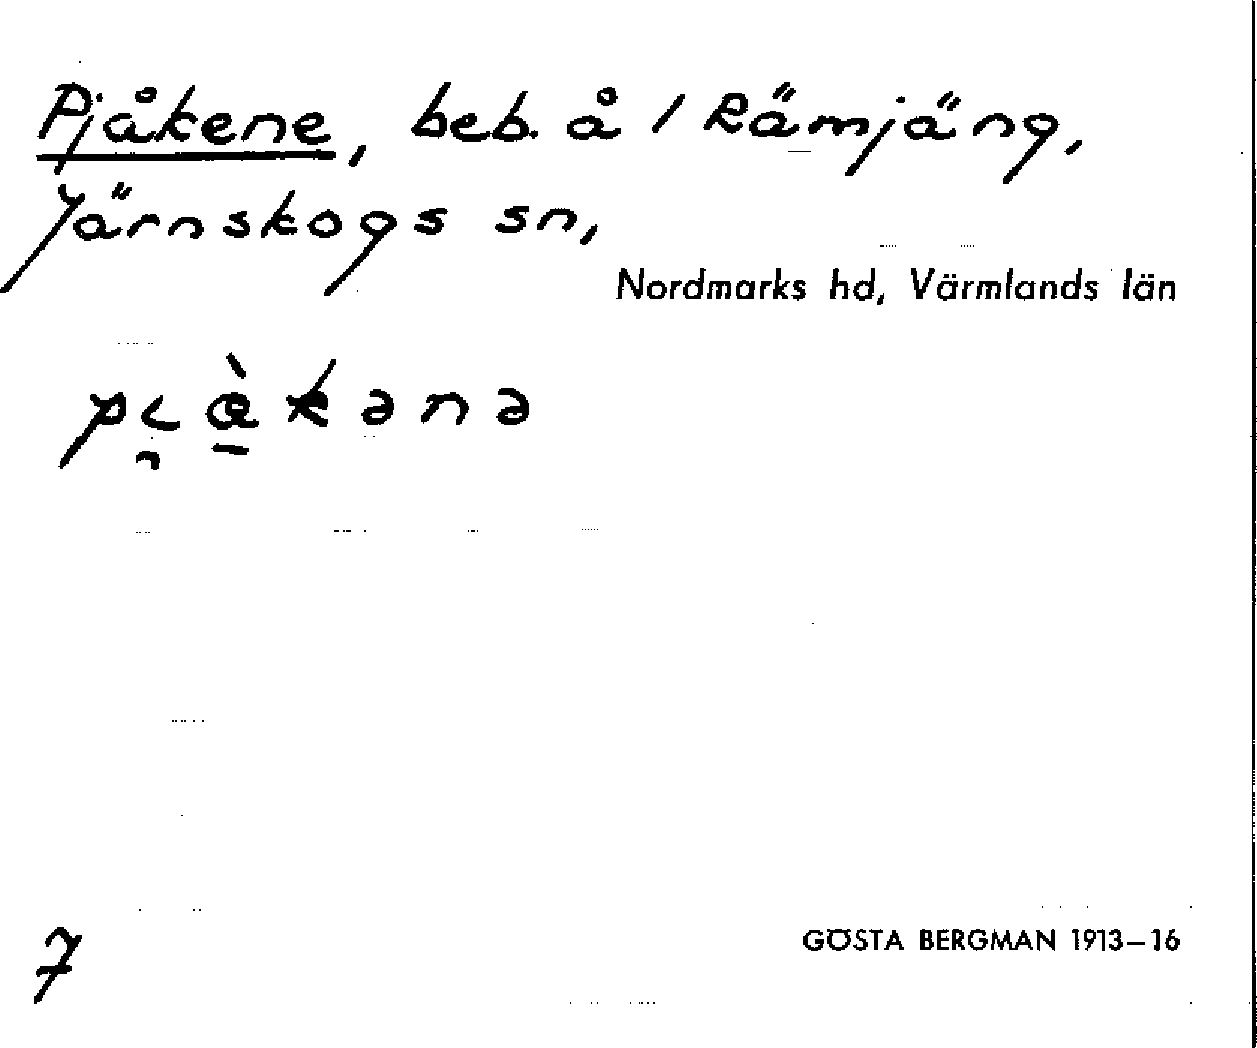 Pjåkene, beb. å 1 Rämjäng,
Järnskogs sn,
Nordmarks hd, Värmlands län
pi̯å̱̀kənə
7
GÖSTA BERGMAN 1913–16